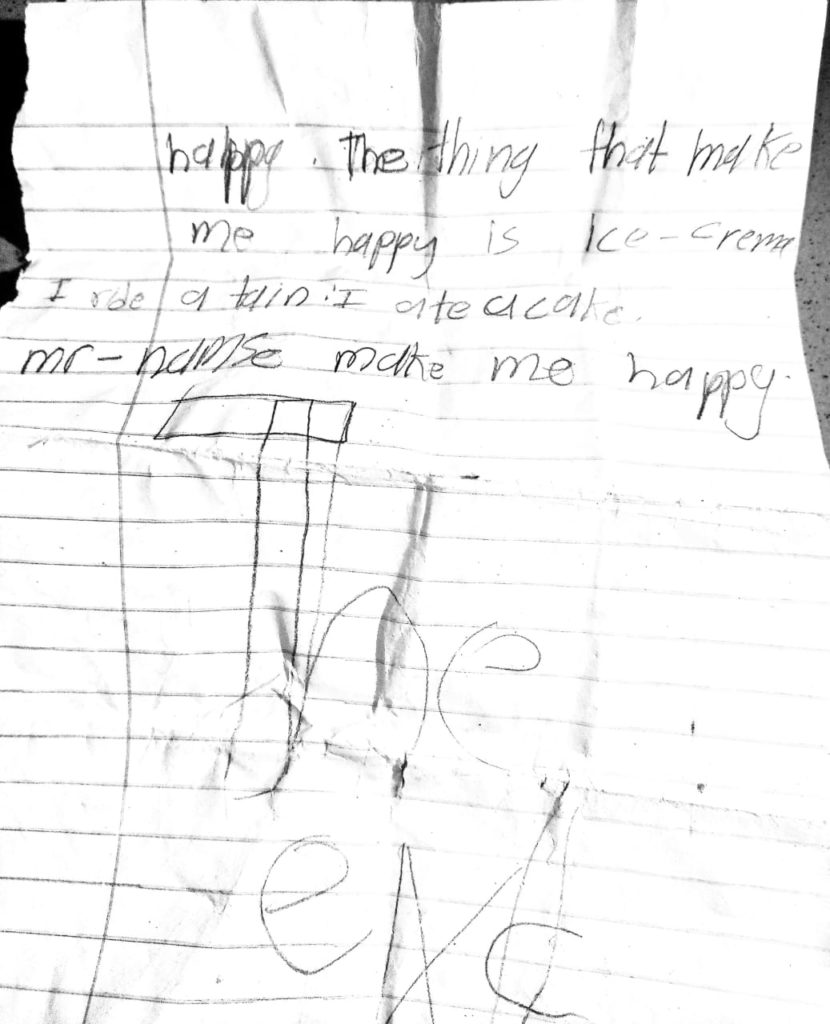 happy. The thing that make
me happy is Ice-crema
I ride a tain. I ate a cake.
mr-namse make me happy.
The